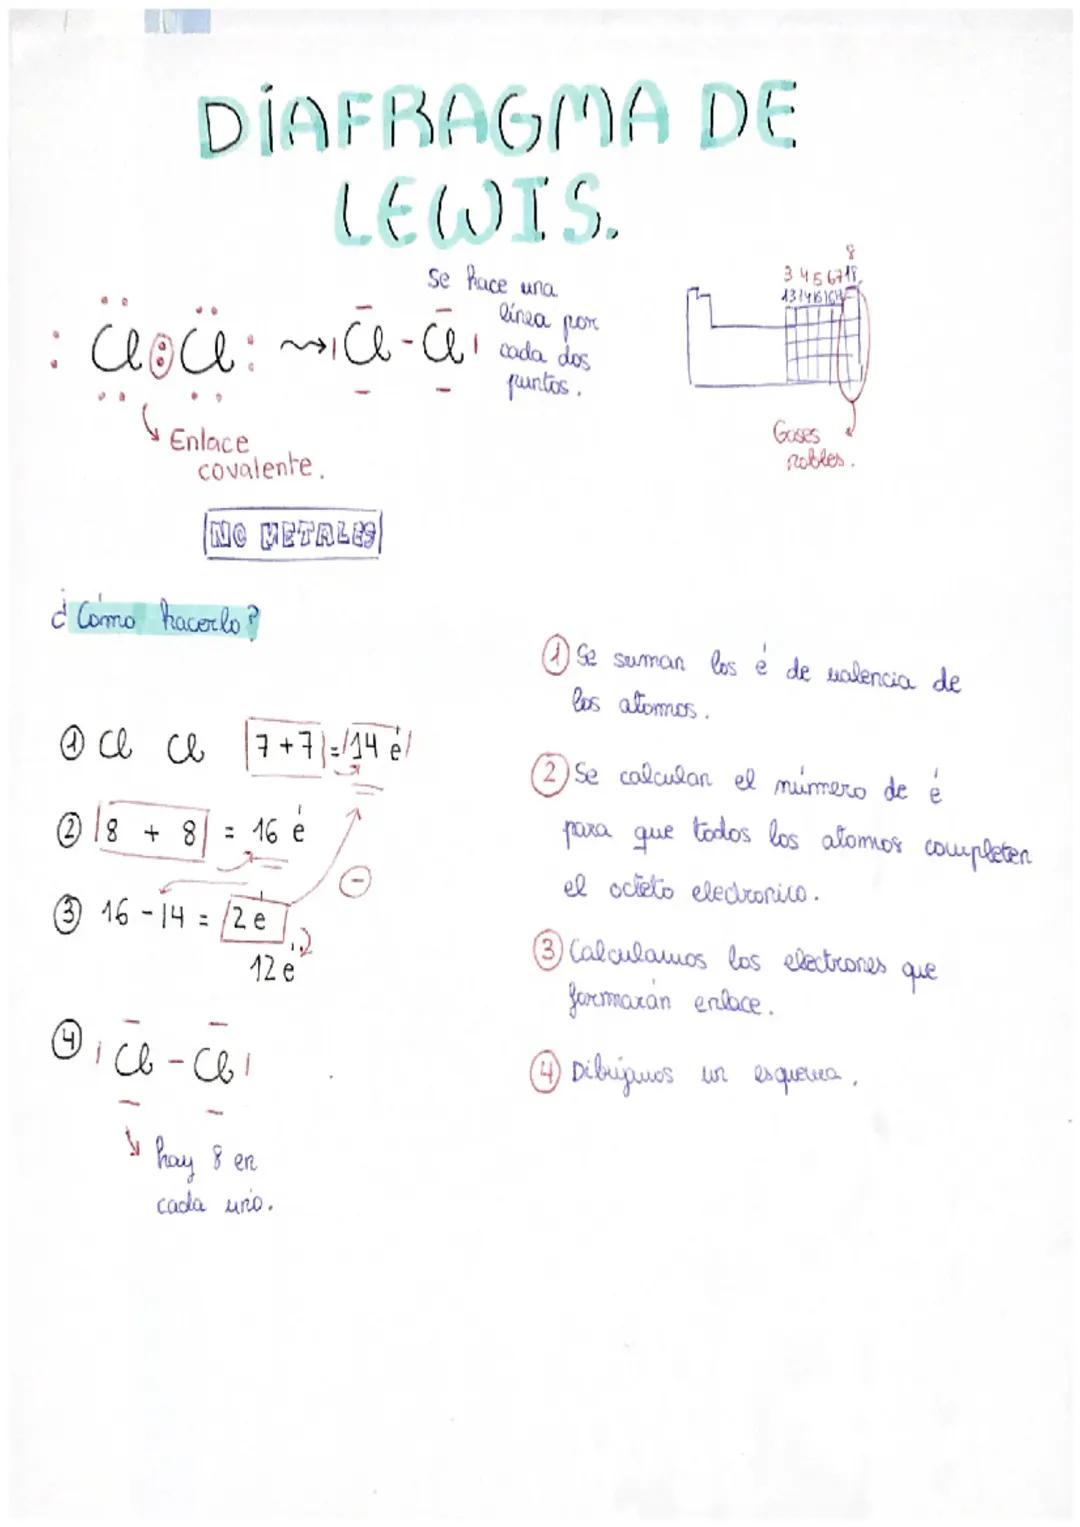 DIAFRAGMA DE
LEWIS.
Se hace una
línea por
cada dos
puntos.
Cl Cl ⇝ Cl - Cl
Enlace
covalente.
NO METALES
8
3 4 5 6 7 18
13 14 15 16 17
Gases
nobles.
¿Cómo hacerlo?
① Cl Cl 7 + 7 = 14 e⁻
② 8 + 8 = 16 e⁻
③ 16 - 14 = 2 e⁻
12 e⁻
④ Cl - Cl
hay 8 en
cada uno.
① Se suman los e⁻ de valencia de
los atomos.
② Se calculan el número de e⁻
para que todos los atomos completen
el octeto electronico.
③ Calculamos los electrones que
formarán enlace.
④ Dibujamos un esquema.